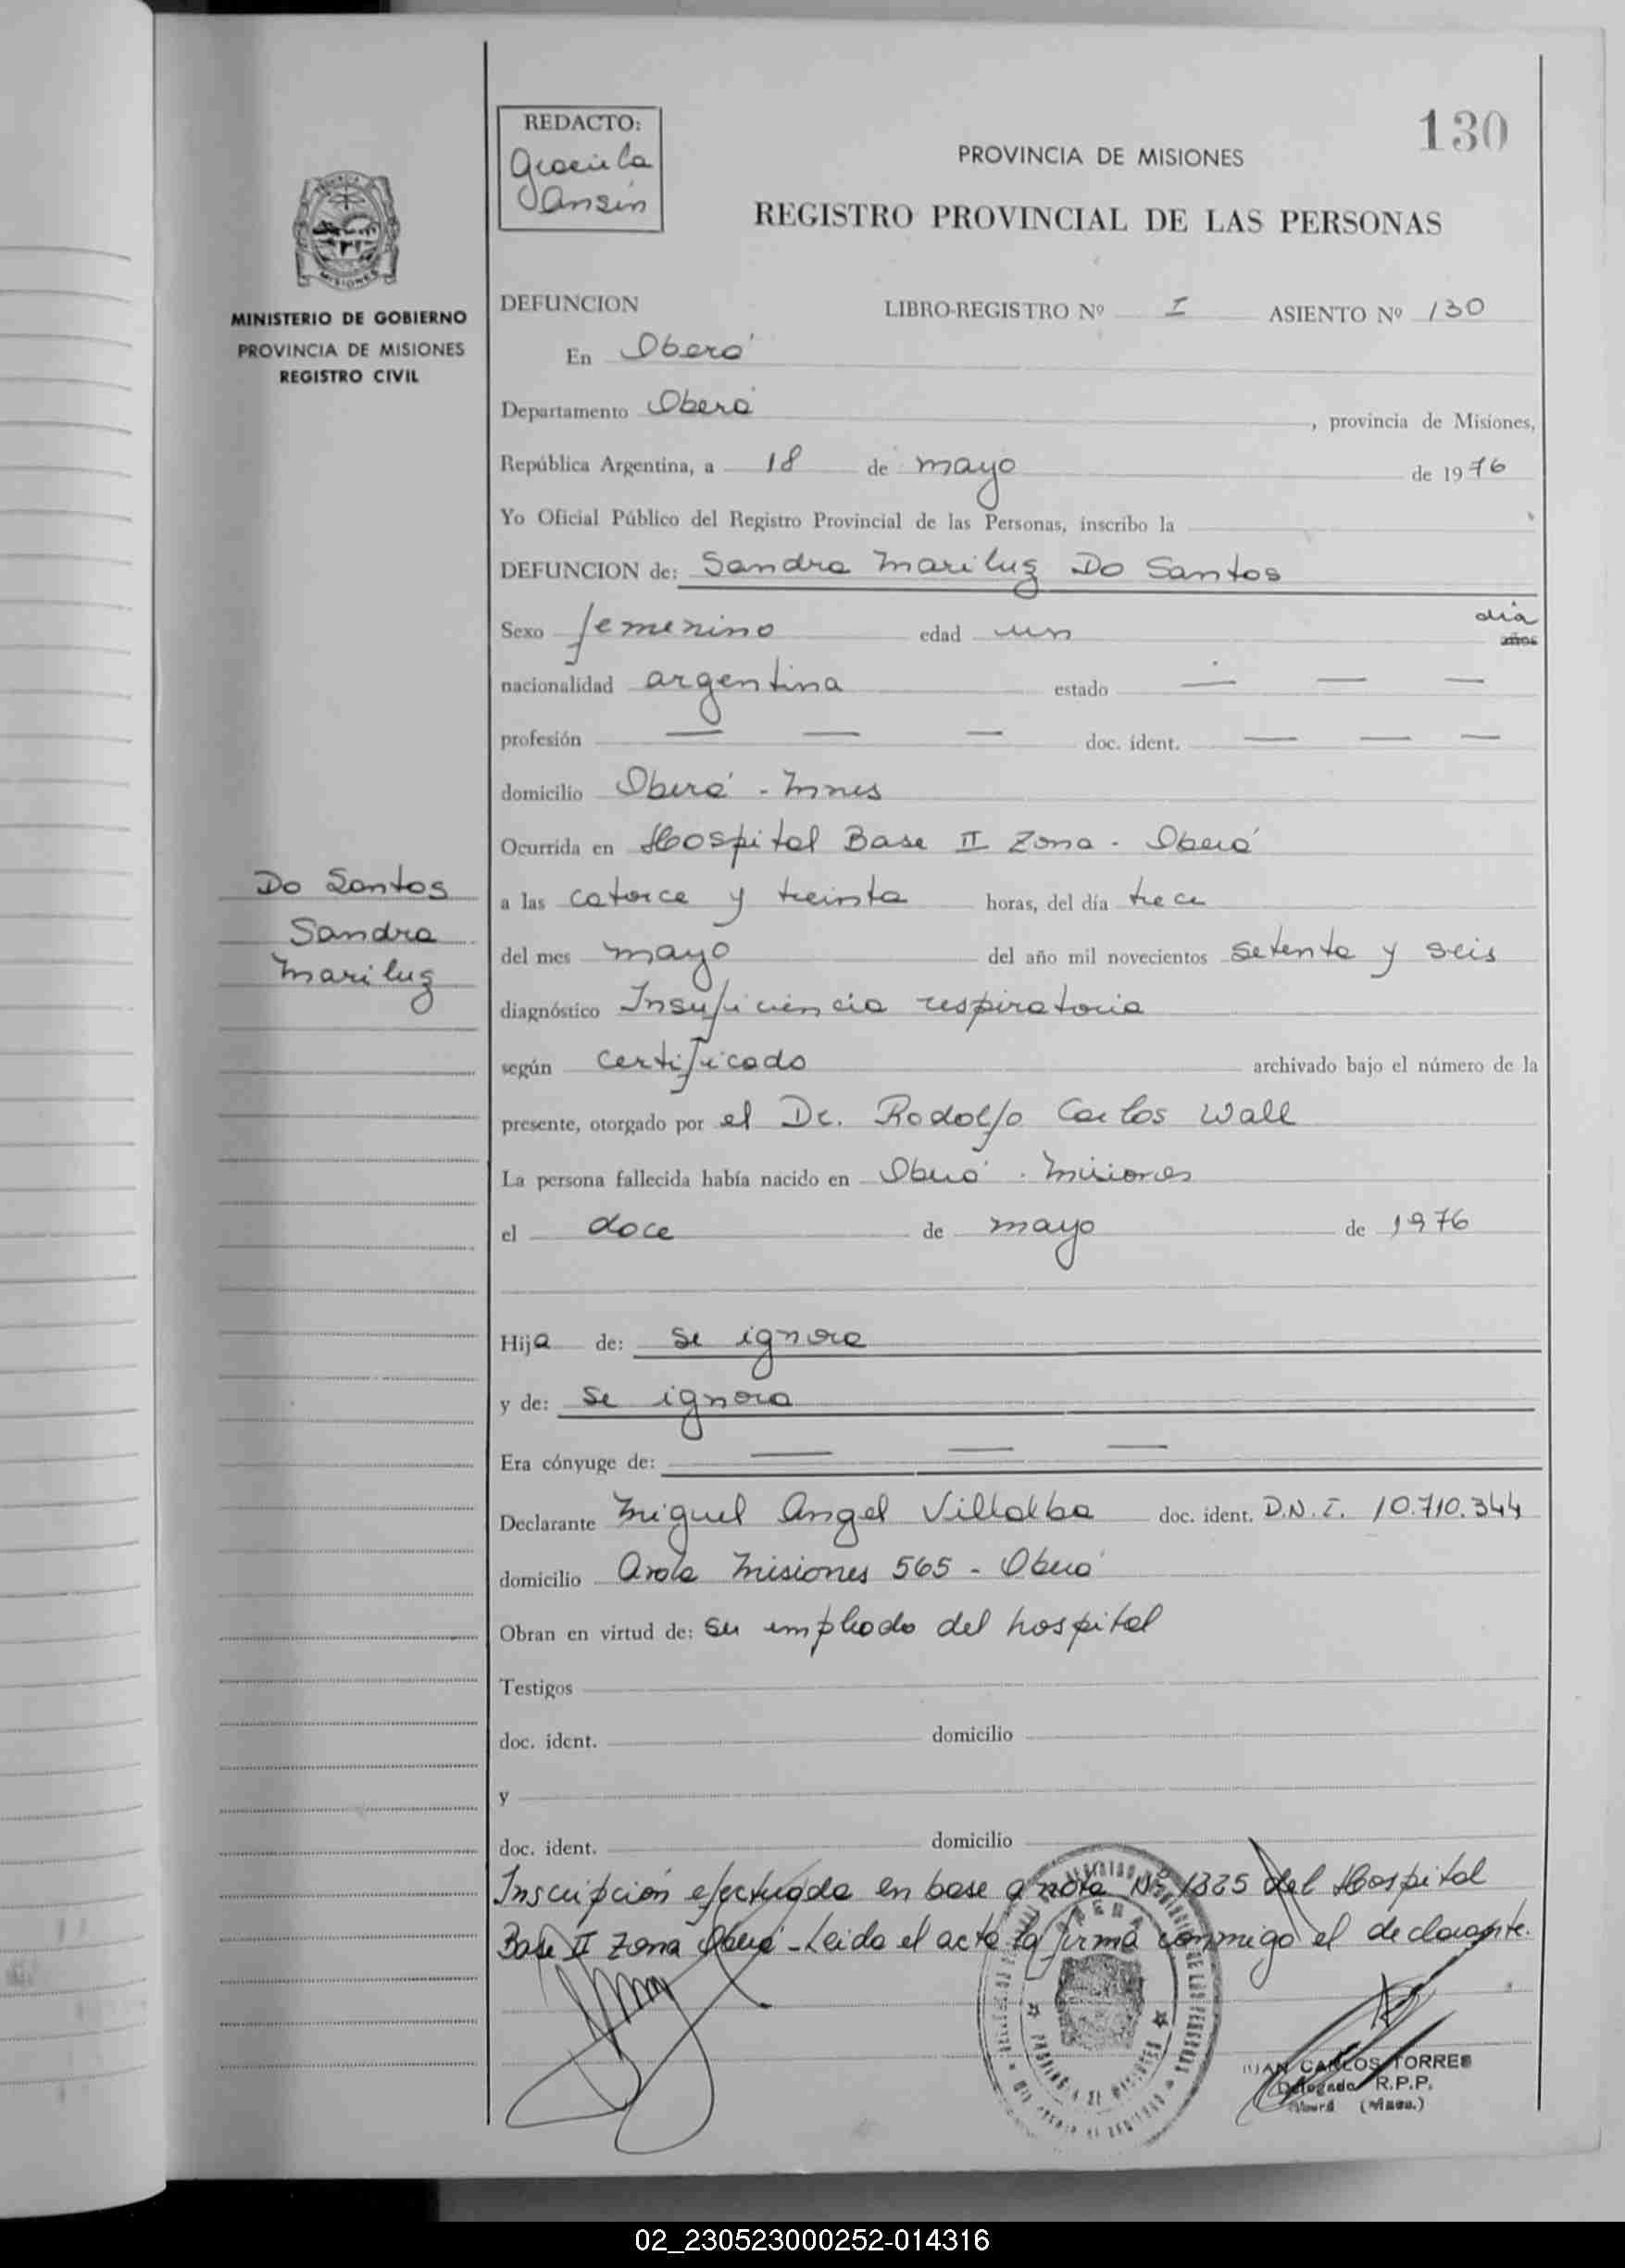 130
REDACTO:
Graciela
Jansin
PROVINCIA DE MISIONES
REGISTRO PROVINCIAL DE LAS PERSONAS
MINISTERIO DE GOBIERNO
PROVINCIA DE MISIONES
REGISTRO CIVIL
DEFUNCION LIBRO-REGISTRO Nº I ASIENTO Nº 130
En Oberá
Departamento Oberá, provincia de Misiones,
República Argentina, a 18 de mayo de 1976
Yo Oficial Público del Registro Provincial de las Personas, inscribo la
DEFUNCION de: Sandra Mariluz Do Santos
Sexo femenino edad un años día
nacionalidad argentina estado — — —
profesión — — — doc. ident. — — —
domicilio Oberá - Mnes
Ocurrida en Hospital Base II Zona - Oberá
a las catorce y treinta horas, del día trece
del mes mayo del año mil novecientos setenta y seis
diagnóstico Insuficiencia respiratoria
según certificado archivado bajo el número de la
presente, otorgado por el Dr. Rodolfo Carlos Wall
La persona fallecida había nacido en Oberá - Misiones
el doce de mayo de 1976
Hija de: se ignora
y de: se ignora
Era cónyuge de: — — —
Declarante Miguel Angel Villalba doc. ident. D.N.I. 10.710.344
domicilio Avda Misiones 565 - Oberá
Obran en virtud de: su empleado del hospital
Testigos
doc. ident. domicilio
y
doc. ident. domicilio
Inscripción efectuada en base a nota Nº 1325 del Hospital
Base II Zona Oberá - Leida el acta la firma conmigo el declarante.
Do Santos
Sandra
Mariluz
JUAN CARLOS TORRES
Delegado R.P.P.
Oberá (Mnes.)
02_230523000252-014316